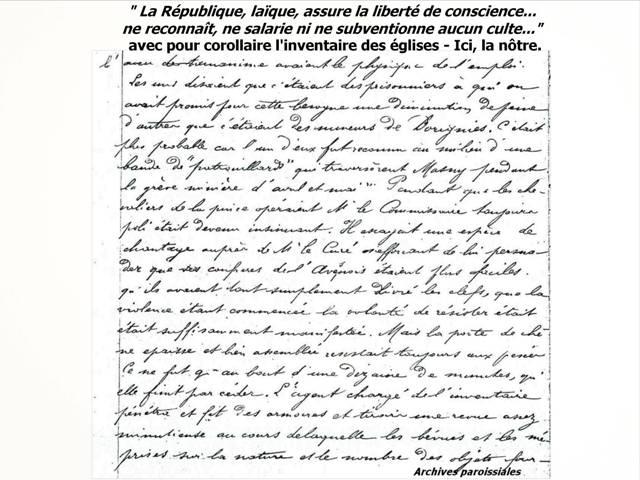 " La République, laïque, assure la liberté de conscience...
ne reconnaît, ne salarie ni ne subventionne aucun culte..."
avec pour corollaire l'inventaire des églises - Ici, la nôtre.
l' aveu des humanisme avaient le physique de l'emploi.
Les uns disaient que c'étaient des prisonniers à qui on
avait promis pour cette besogne une diminution de peine
d'autres que c'étaient des mineurs de Dorignies. C'était
plus probable car l'un d'eux fut reconnu au milieu d'une
bande de "patrouillards" qui traversèrent Masny pendant
la grève minière d'avril et mai Pendant que les che-
valiers de la pince opéraient Mr le Commissaire toujours
poli était devenu insinuant. Il essayait une espèce de
chantage auprès de Mr le Curé s'efforçant de lui persua-
der que ses confrères de l' étaient plus dociles.
qu'ils avaient tout simplement livré les clefs, que la
violence étant commencée la volonté de résister était
était suffisamment manifestée. Mais la porte de chê-
ne épaisse et bien assemblée résistait toujours aux pesées
Ce ne fut qu'au bout d'une dizaine de minutes, qu'
elle finit par céder. L'agent chargé de l'inventaire
pénètre et fit des armoires et tiroirs une revue assez
minutieuse au cours de laquelle les bévues et les mé-
prises sur la nature et le nombre des objets four-
Archives paroissiales